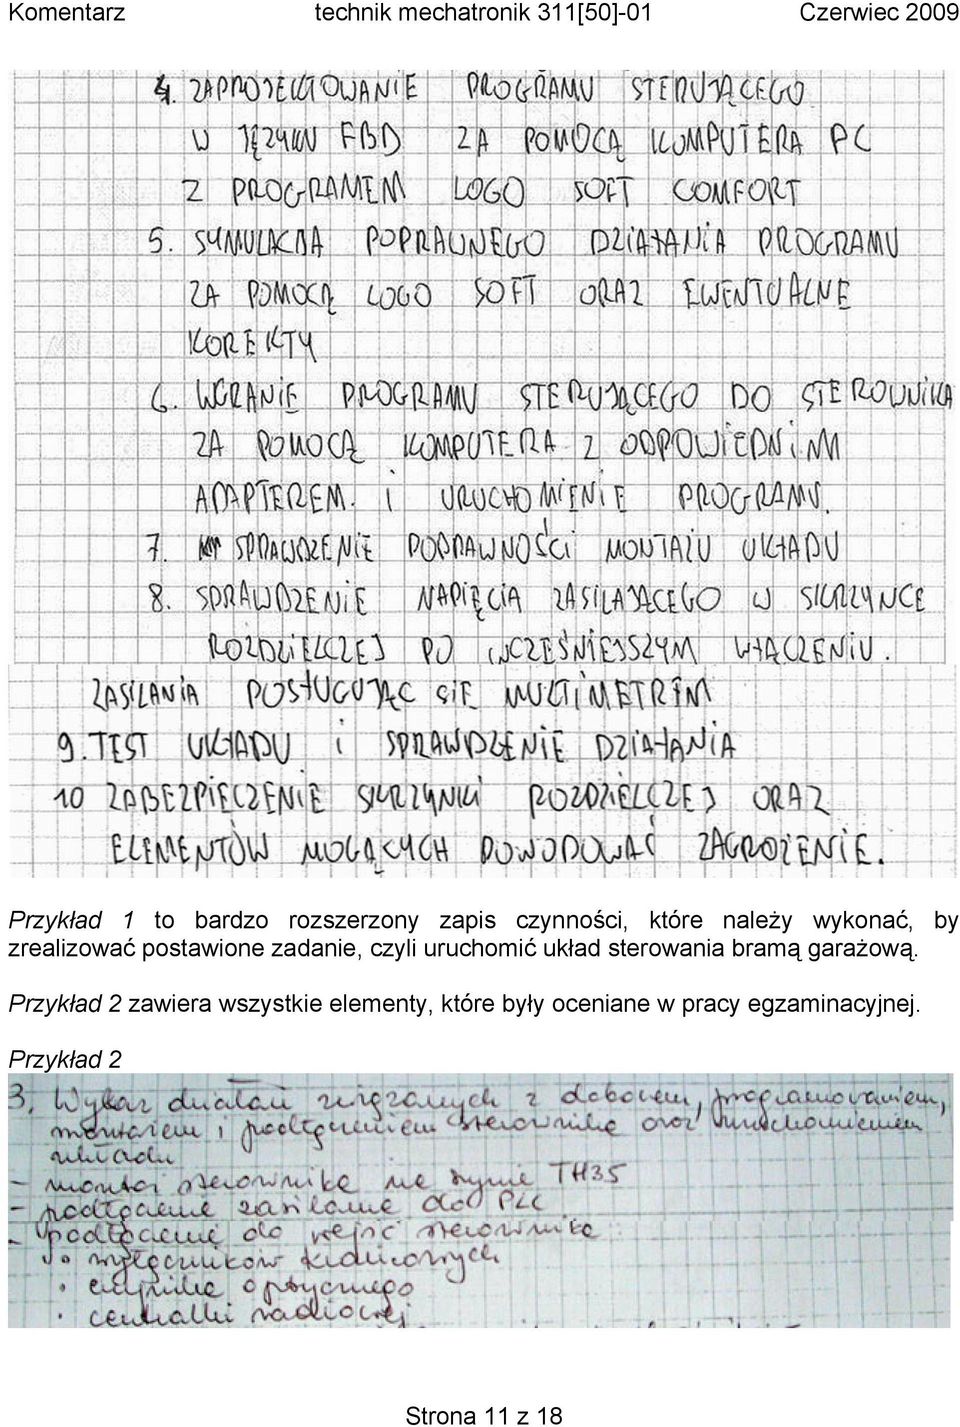 Komentarz technik mechatronik 311[50]-01 Czerwiec 2009
4. ZAPROJEKTOWANIE PROGRAMU STERUJĄCEGO
W JĘZYKU FBD ZA POMOCĄ KOMPUTERA PC
Z PROGRAMEM LOGO SOFT COMFORT
5. SYMULACJA POPRAWNEGO DZIAŁANIA PROGRAMU
ZA POMOCĄ LOGO SOFT ORAZ EWENTUALNE
KOREKTY
6. WGRANIE PROGRAMU STERUJĄCEGO DO STEROWNIKA
ZA POMOCĄ KOMPUTERA Z ODPOWIEDNIM
ADAPTEREM. I URUCHOMIENIE PROGRAMU.
7. SPRAWDZENIE POPRAWNOŚCI MONTAŻU UKŁADU
8. SPRAWDZENIE NAPIĘCIA ZASILAJĄCEGO W SKRZYNCE
ROZDZIELCZEJ PO WCZEŚNIEJSZYM WŁĄCZENIU.
ZASILANIA POSŁUGUJĄC SIĘ MULTIMETREM
9. TEST UKŁADU I SPRAWDZENIE DZIAŁANIA
10 ZABEZPIECZENIE SKRZYNKI ROZDZIELCZEJ ORAZ
ELEMENTÓW MOGĄCYCH POWODOWAĆ ZAGROŻENIE.
Przykład 1 to bardzo rozszerzony zapis czynności, które należy wykonać, by
zrealizować postawione zadanie, czyli uruchomić układ sterowania bramą garażową.
Przykład 2 zawiera wszystkie elementy, które były oceniane w pracy egzaminacyjnej.
Przykład 2
3. Wykaz działań związanych z doborem, programowaniem,
montażem i podłączeniem sterownika oraz uruchomieniem
układu
- montaż sterownika na szynie TH35
- podłączenie zasilania do PLC
- podłączenie do wejść sterownika
• wyłączników krańcowych
• czujnika optycznego
• centralki radiowej
Strona 11 z 18